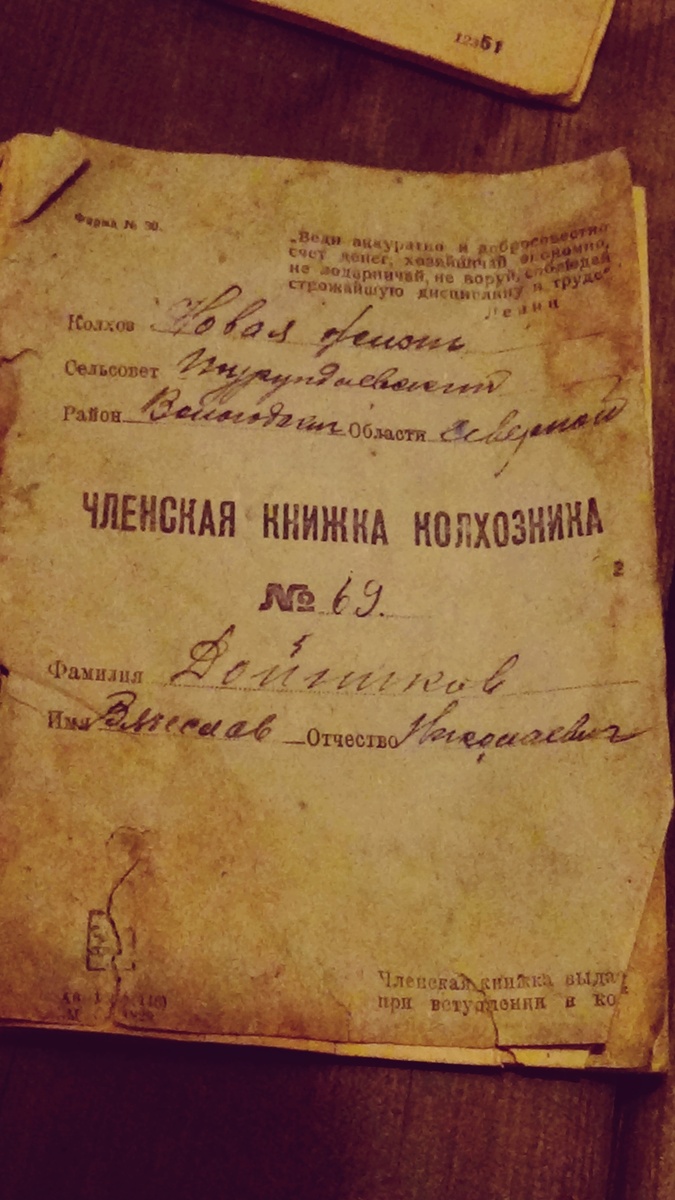 12351
Форма № 30.
„Веди аккуратно и добросовестно
счет денег, хозяйничай экономно,
не лодырничай, не воруй, соблюдай
строжайшую дисциплину в труде“
Ленин
Колхоз Новая жизнь
Сельсовет
Район Вологодский Области Северной
ЧЛЕНСКАЯ КНИЖКА КОЛХОЗНИКА
2
№ 69.
Фамилия Дойников
Имя Вячеслав Отчество Николаевич
Членская книжка выда
при вступлении в ко